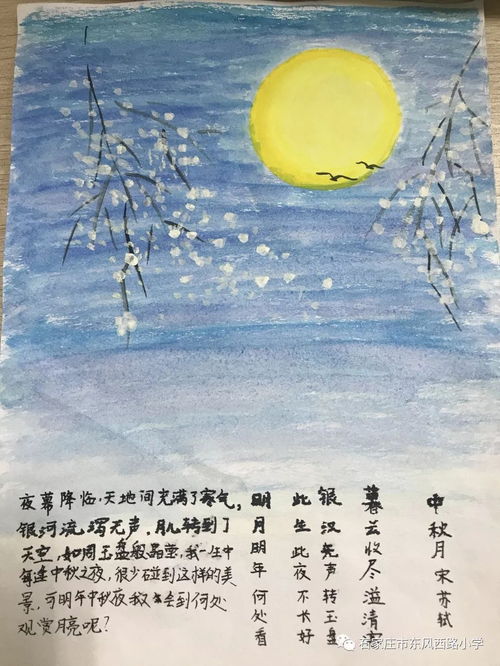 中秋月 宋 苏轼
暮云收尽溢清寒
银汉无声转玉盘
此生此夜不长好
明月明年何处看
夜幕降临,天地间充满了寒气,
银河流泻无声,月儿转到了
天空,如同玉盘般晶莹,我一生中
每逢中秋之夜,很少碰到这样的美
景,可明年中秋夜我又会到何处
观赏月亮呢?
石家庄市东风西路小学